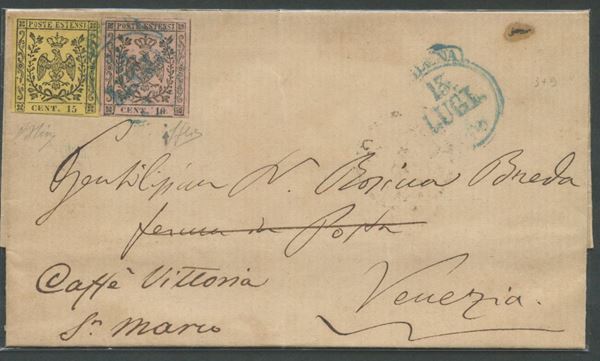 POSTE ESTENSI
CENT. 15
POSTE ESTENSI
CENT. 10
15
LUGL.
3+9
Rosina Breda
ferma in Posta
Caffè Vittoria
Sn Marco
Venezia.